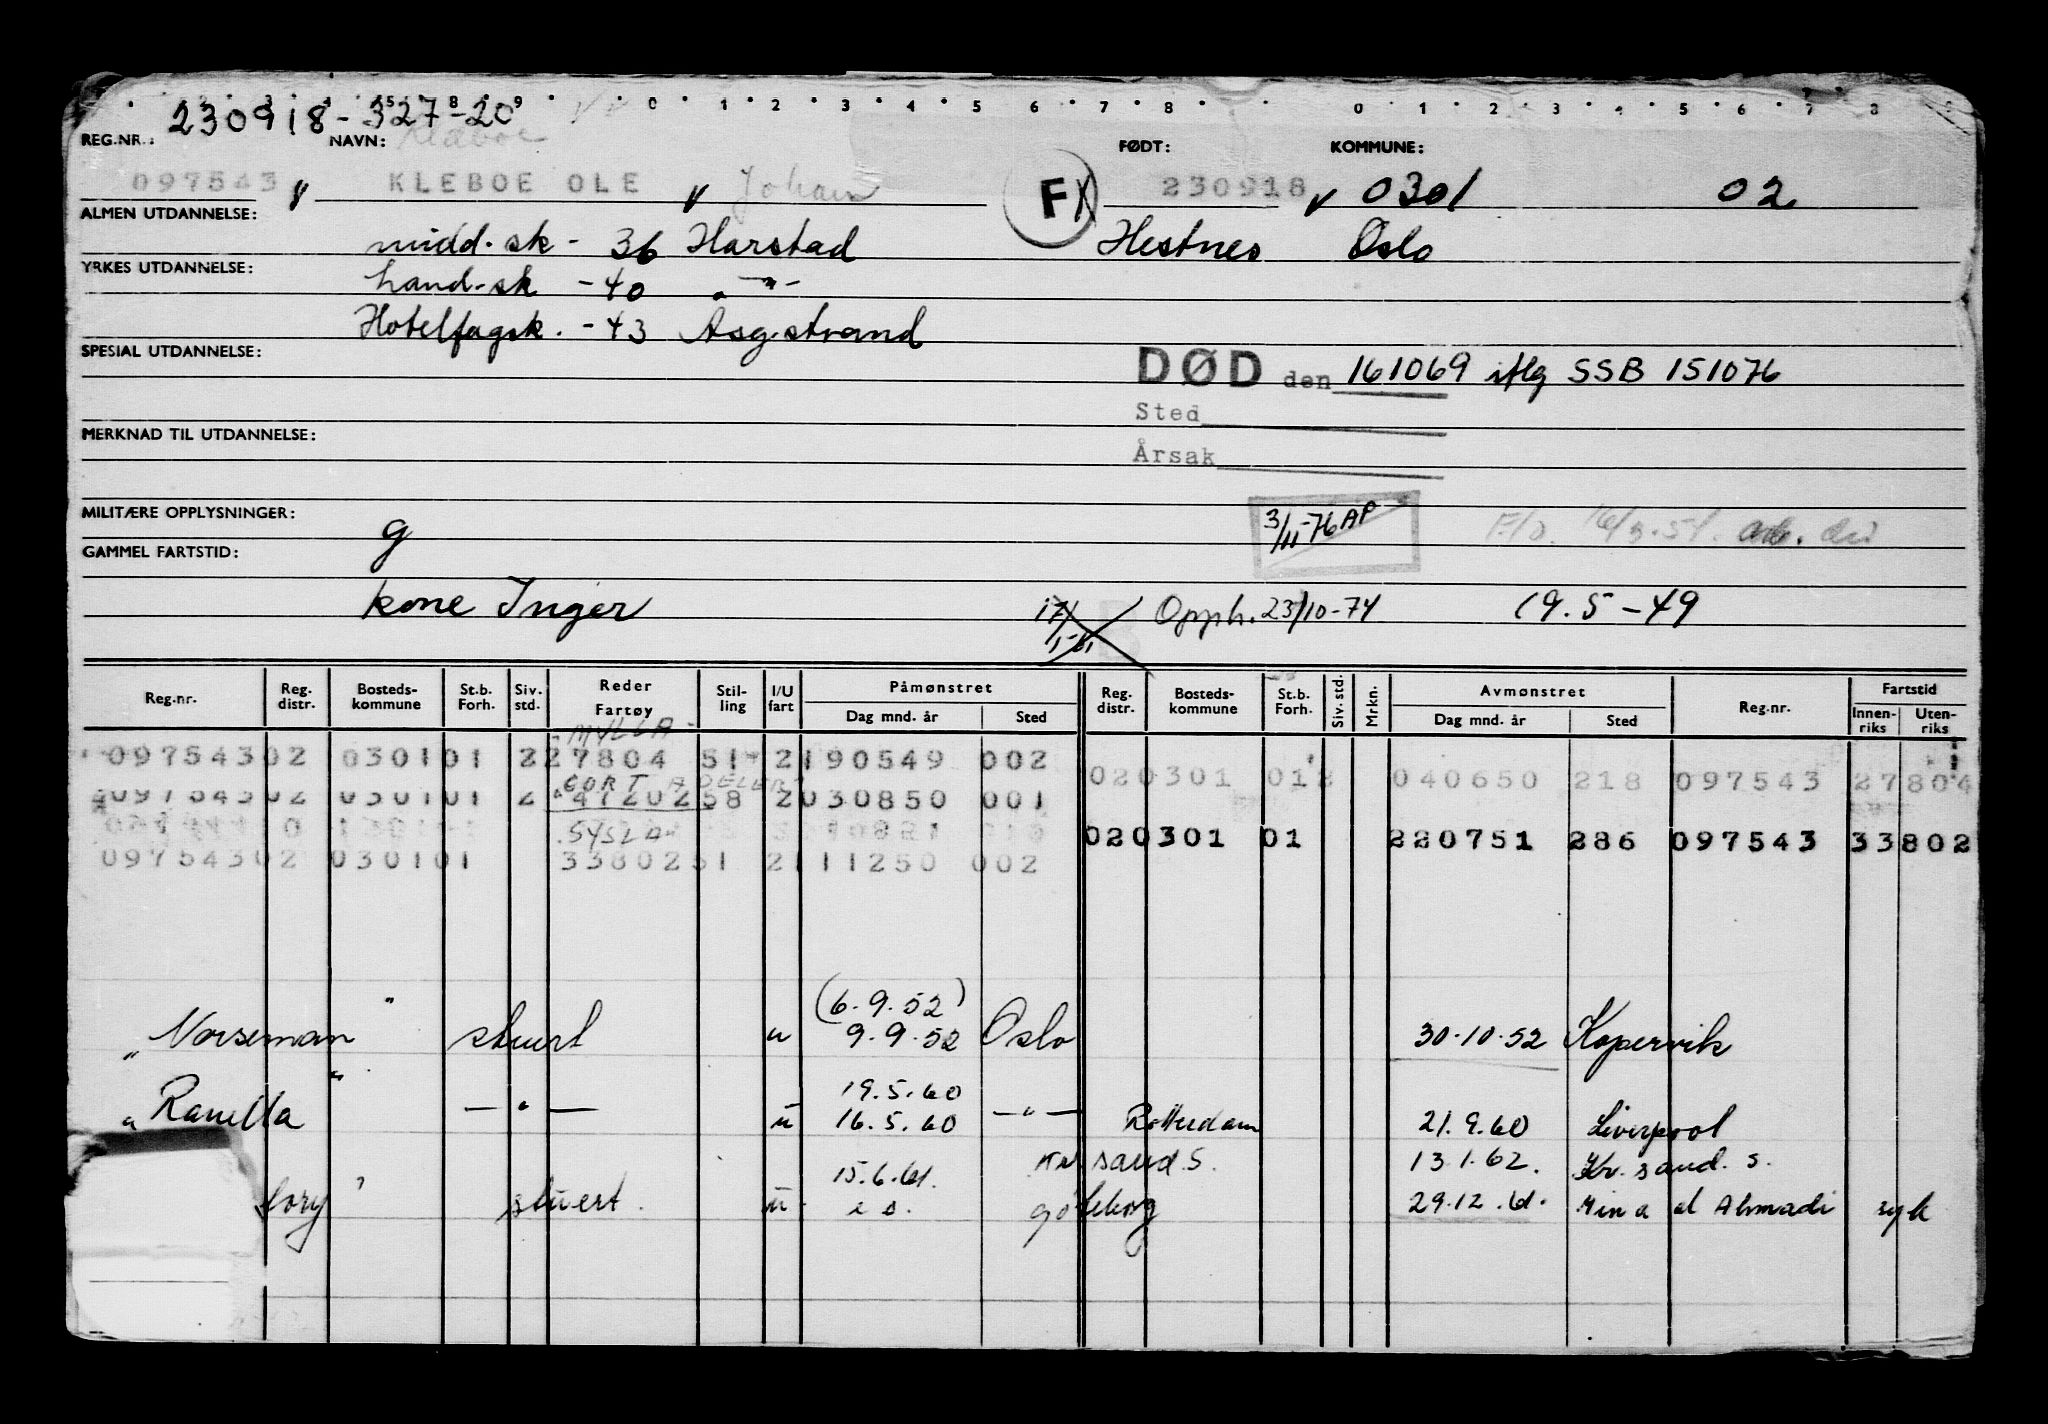 230918-327-20
REG.NR.: NAVN: FØDT: KOMMUNE:
097543 KLEBOE OLE Johan F 230918 0301 02
ALMEN UTDANNELSE: midd.sk - 36 Harstad Hestnes Oslo
YRKES UTDANNELSE: hand.sk - 40 - " -
Hotelfagsk. - 43 Åsgstrand
SPESIAL UTDANNELSE:
DØD den 161069 iflg SSB 151076
Sted
MERKNAD TIL UTDANNELSE:
Årsak
MILITÆRE OPPLYSNINGER: g
3/11-76 AP
GAMMEL FARTSTID:
kone Inger Opph. 23/10-74 19.5-49
Reg.nr. Reg. distr. Bosteds-kommune St.b. Forh. Siv. std. Reder Fartøy Stil-ling I/U fart Påmønstret Dag mnd. år Sted Reg. distr. Bosteds-kommune St.b. Forh. Siv. std. Mrkn. Avmønstret Dag mnd. år Sted Reg.nr. Fartstid Innen-riks Uten-riks
MYLLA
097543 02 0301 01 2 27804 51 2 190549 002
02 0301 01 2 040650 218 097543 27804
CORT ADELER
097543 02 0301 01 2 47202 58 2 030850 001
SYSLA
02 0301 01 220751 286 097543 33802
097543 02 0301 01 33802 51 2 111250 002
(6.9.52)
"Norseman" stuert u 9.9.52 Oslo 30.10.52 Kopervik
19.5.60
"Ranella" - " - u 16.5.60 - " - Rotterdam 21.9.60 Liverpool
15.6.61. Kr sand S. 13.1.62. Kr. sand. s.
lory" stuert. u Göteborg 29.12.61. Mina al Ahmadi syk